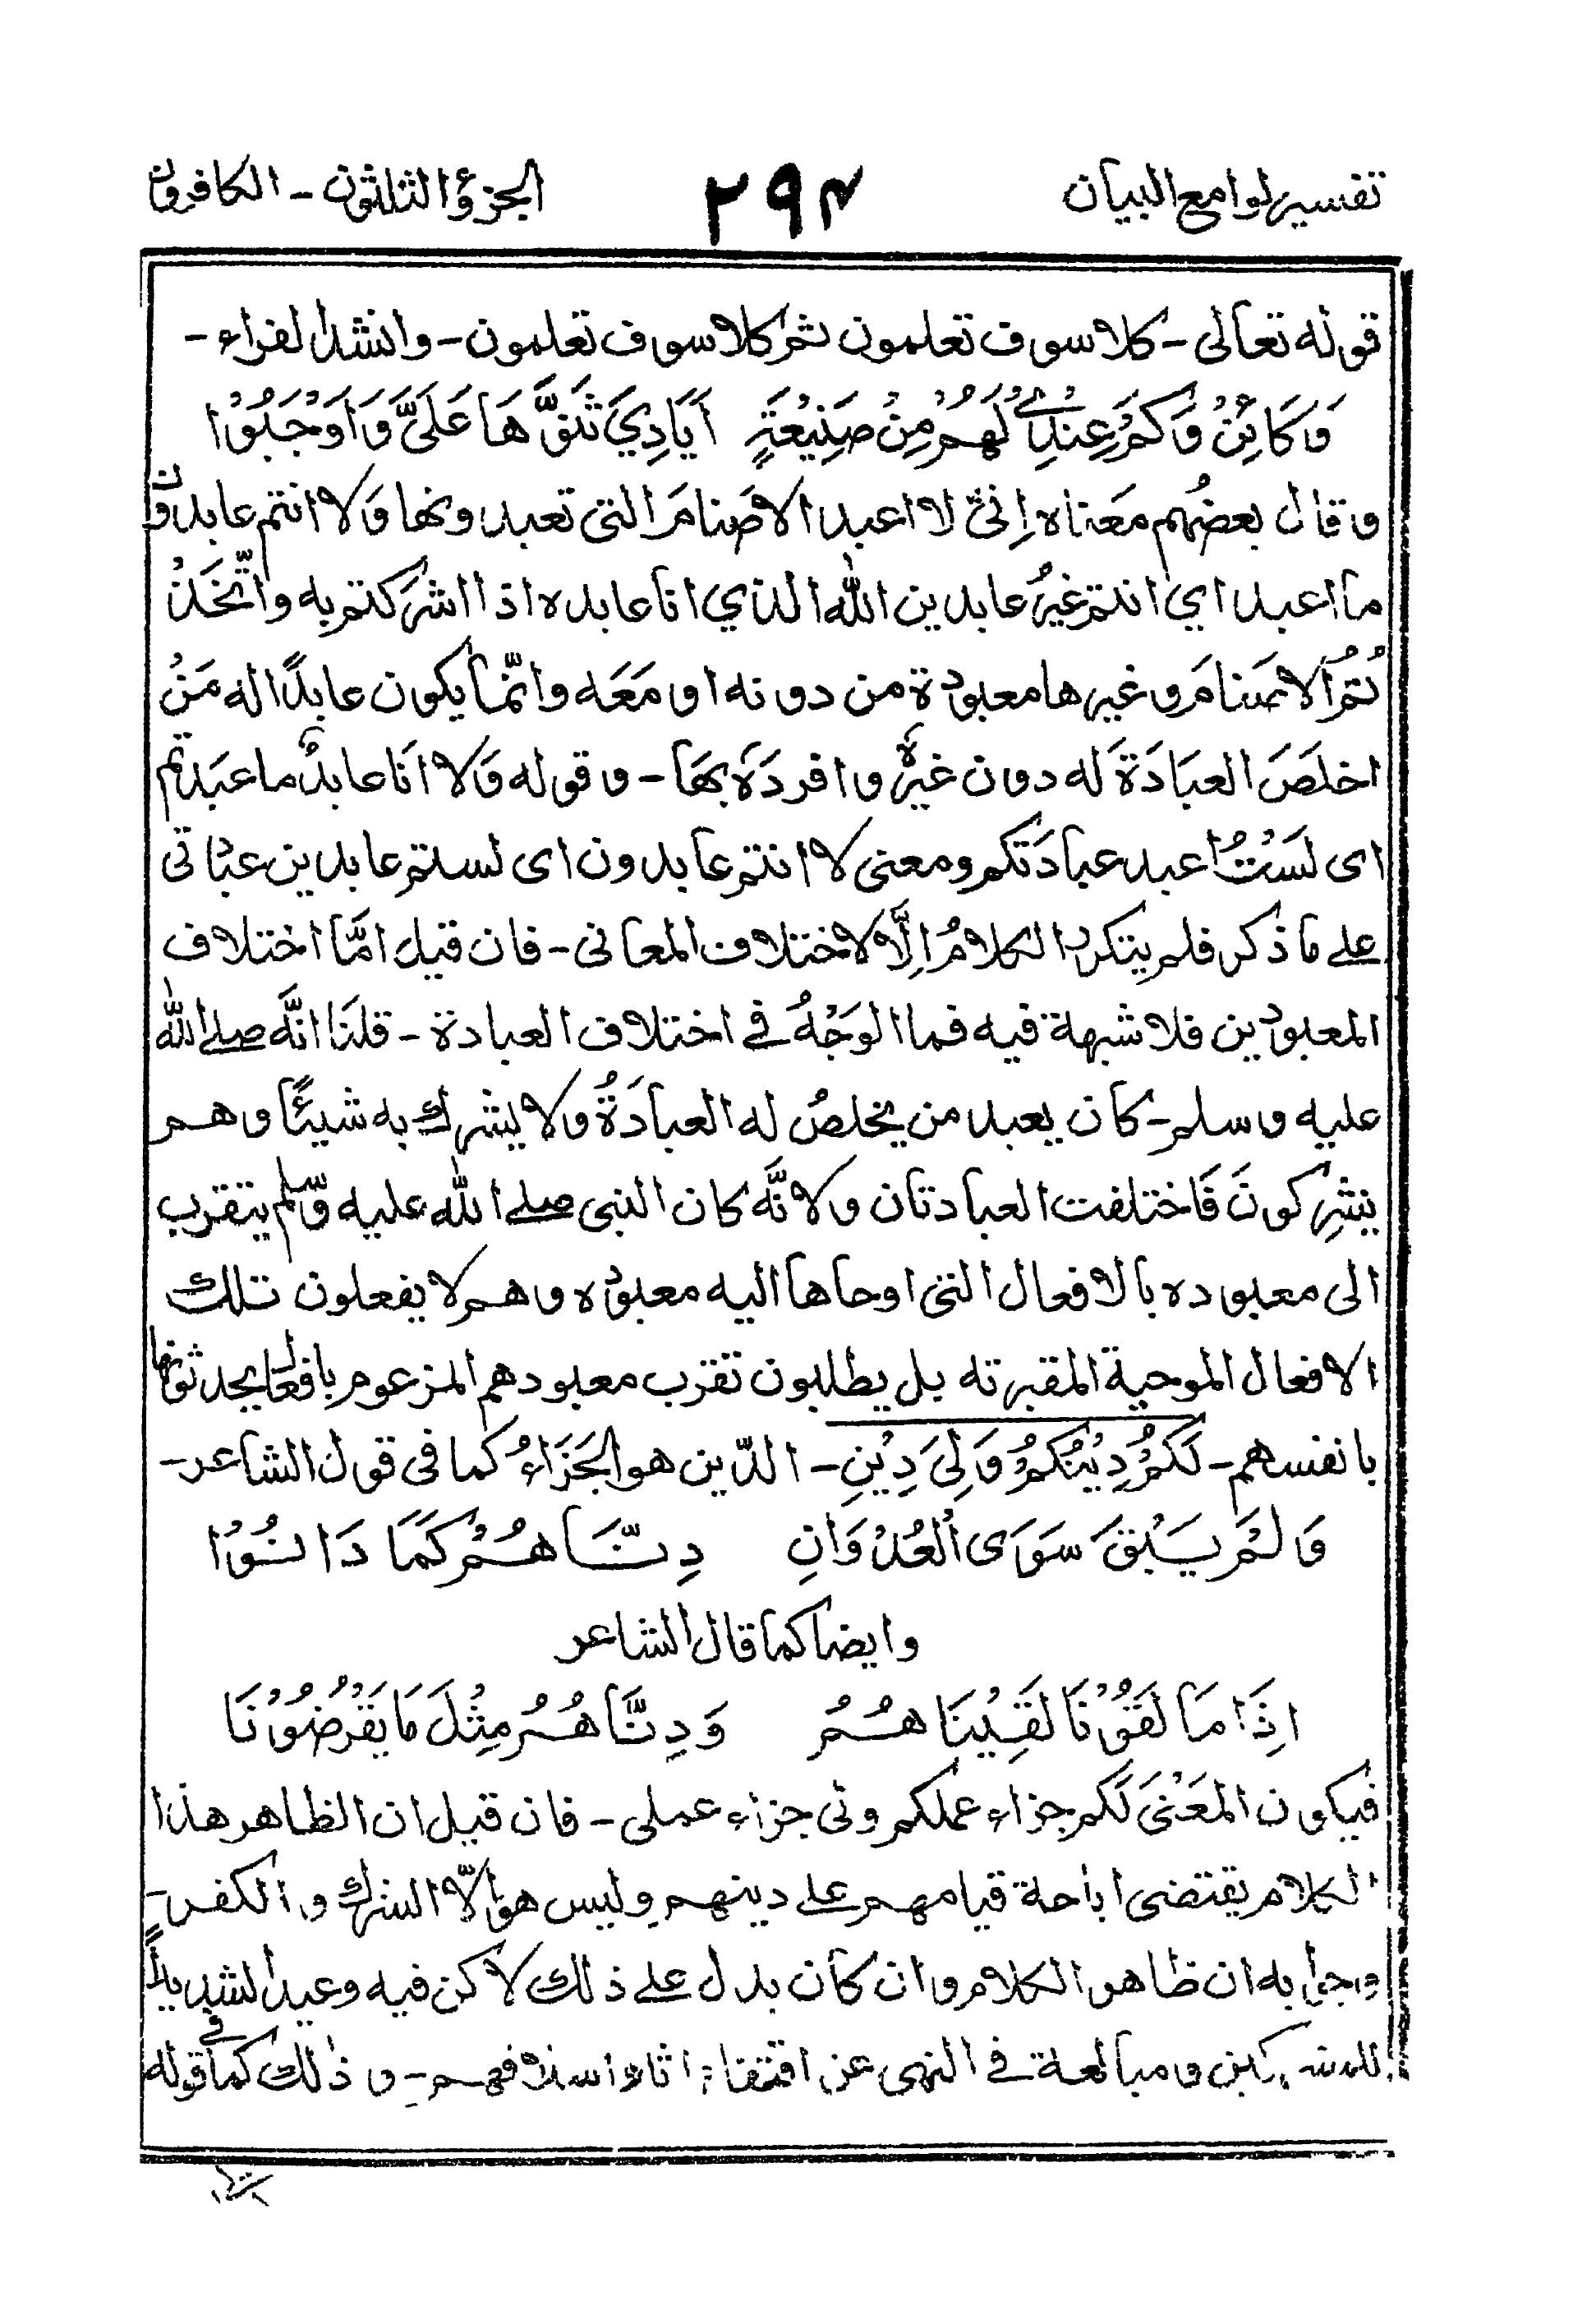 تفسير لوامع البيان ٢٩٤ الجزؤ الثلثون - الكافرون
قوله تعالى - كلا سوف تعلمون ثم كلا سوف تعلمون - وانشد الفراء -
وَكَائِنْ وَكَمْ عِنْدِيْ لَهُمْ مِنْ صَنِيْعَةٍ اَيَادِيَ ثَنَوَّهَا عَلَىَّ وَاَوْجَبُوْا
وقال بعضُهم مَعناه اِنىّ لا اعبد الاصَنامَ التى تعبدونها وَلا انتم عابدون
ما اعبد اي انتم غيرُ عابدين الله الذي انا عابده اذا اشركتم به واتّخَذْ
تُمُ الاصنامَ وغيرها معبودة من دونه او مَعَه وانّما يكون عابدًا له مَنْ
اخلصَ العبَادَةَ له دون غيرِه وافردَهٗ بهَا - وقوله وَلا انَا عابدٌ ما عبَدتّم
اى لسَتُ اعبد عبادَتكم ومعنى لا انتم عابدون اى لستم عابدين عبادتى
على ما ذكر فلم يتكرر الكلامُ اِلَّا لاختلاف المعانى - فان قيل امَّا اختلاف
المعبودين فلا شبهة فيه فما الوَجْهُ فے اختلاف العبادة - قلنَا انَّه صلے الله
عليه وسلم - كان يعبد من يخلصُ له العبادَةُ ولا يشرك به شيئًا وهم
يشرِكونَ فَاختلفت العبادتان ولانَّه كان النبى صلے الله عليه وسلّم يتقرب
الى معبوده بالافعال التى اوحاها اليه معبوده وهم لا يفعلون تلك
الافعال الموحية المقبرته بل يطلبون تقرب معبودهم المزعوم بافعال يحدثونها
بانفسهم - لَكُمْ دِيْنُكُمْ وَلِىَ دِيْنِ - الدّين هو الجَزَاءُ كما فى قول الشاعر -
وَلَمْ يَبْقَ سَوَى الْعُدْوَانِ دِنَّاهُمْ كَمَا دَانُوْا
وايضا كما قال الشاعر
اِذَا مَا لَقَوْنَا لَقِيْنَاهُمْ وَدِنَّاهُمْ مِثْلَ مَا يَقْرُضُوْنَا
فيكون المَعْنىَ لَكم جزاء عملكم ولى جزاء عملى - فان قيل ان الظاهر هذا
الكلام يقتضى اباحة قيامهم على دينهم وليس هو الّا الشرك والكفر -
به ان ظاهر الكلام وان كان يدل على ذلك لاكن فيه وعيدا لشديداً
ومبالغة فے النهى عن اقتفاء اثار اسلافهم - وذلك كما فى قوله